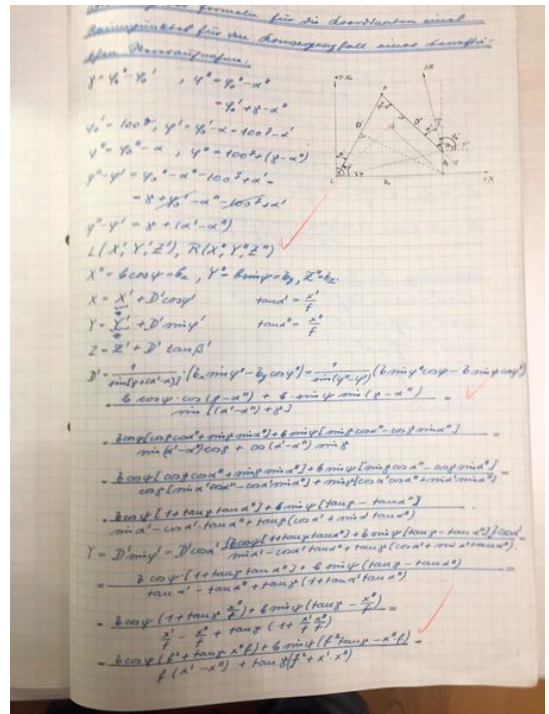 formeln für die Koordinaten eines
Raumpunktes für den Konvergenzfall einer terrestri-
schen Stereoaufnahme.
γ = φ₀" - φ₀' , φ" = φ₀" - α"
= φ₀' + γ - α"
φ₀' = 100ᵍ, φ' = φ₀' - α' = 100ᵍ - α'
φ" = φ₀" - α , φ" = 100ᵍ + (γ - α")
φ" - φ' = φ₀" - α" - 100ᵍ + α' =
= γ + φ₀' - α" - 100ᵍ + α'
φ" - φ' = γ + (α' - α")
L (X', Y', Z'), R (X", Y", Z")
X" = b cos φ = bₓ, Y" = b sin φ = b_y, Z" = b_z.
X = X' + D' cos φ' tan α' = x'/f
Y = Y' + D' sin φ' tan α" = x"/f
Z = Z' + D' tan β'
D' = 1/sin[γ + (α' - α")] · (bₓ sin φ" - b_y cos φ") = 1/sin(φ" - φ') (b sin φ" cos φ - b sin φ cos φ")
= b cos φ · cos (γ - α") + b · sin φ sin (γ - α") / sin [(α' - α") + γ] =
= b cos φ [cos γ cos α" + sin γ sin α"] + b sin φ [sin γ cos α" - cos γ sin α"] / sin (α' - α") cos γ + cos (α' - α") sin γ =
= b cos φ [cos γ cos α" + sin γ sin α"] + b sin φ [sin γ cos α" - cos γ sin α"] / cos γ [sin α' cos α" - cos α' sin α"] + sin γ [cos α' cos α" + sin α' sin α"] =
= b cos φ [1 + tan γ tan α"] + b sin φ [tan γ - tan α"] / sin α' - cos α' · tan α" + tan γ (cos α' + sin α' tan α")
Y = D' sin φ' = D' cos α' = {b cos φ [1 + tan γ tan α"] + b sin φ [tan γ - tan α"]} cos α' / sin α' - cos α' tan α" + tan γ (cos α' + sin α' tan α") =
= b cos φ · [1 + tan γ tan α"] + b sin φ (tan γ - tan α") / tan α' - tan α" + tan γ (1 + tan α' tan α") =
= b cos φ (1 + tan γ x"/f) + b sin φ (tan γ - x"/f) / x'/f - x"/f + tan γ (1 + x'/f x"/f) =
= b cos φ (f² + tan γ x" f) + b sin φ (f² tan γ - x" f) / f (x' - x") + tan γ (f² + x' · x") =